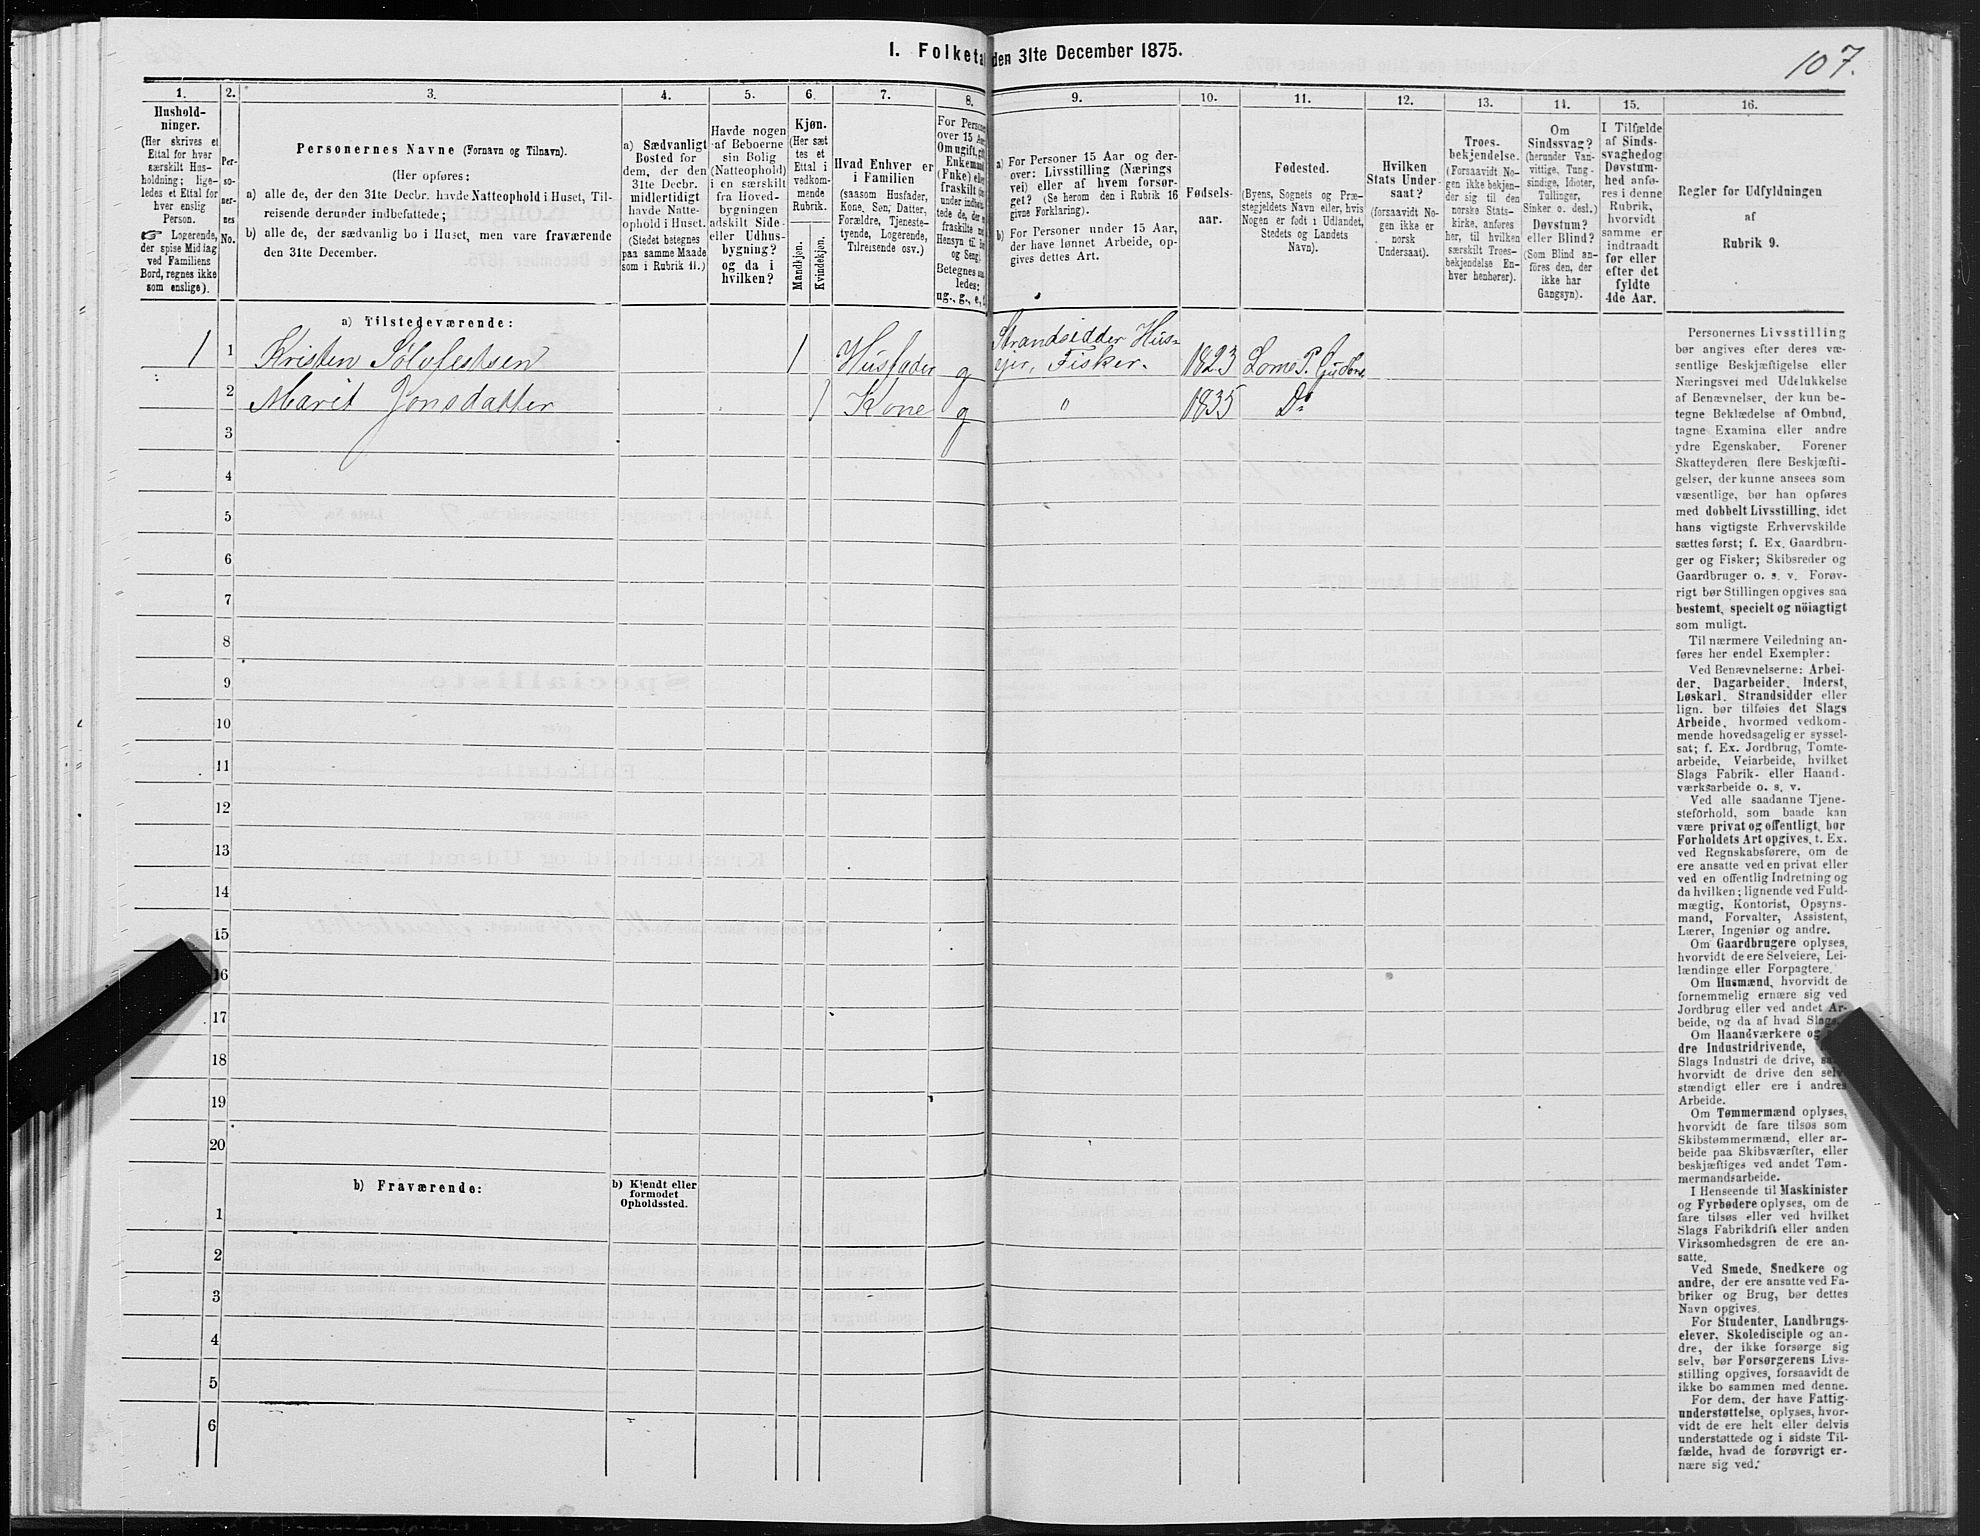 I. Folketa den 31te December 1875.
107.
1.
2.
3.
4.
5.
6.
7.
8.
9.
10.
11.
12.
13.
14.
15.
16.
Hushold-
ninger.
(Her skrives et
Ettal for hver
særskilt Hus-
holdning; lige-
ledes et Ettal for
hver enslig
Person.
☞ Logerende,
der spise Middag
ved Familiens
Bord, regnes ikke
som enslige).
Per-
so-
ner-
nes
No.
Personernes Navne (Fornavn og Tilnavn).
(Her opføres:
a) alle de, der den 31te Decbr. havde Natteophold i Huset, Til-
reisende derunder indbefattede;
b) alle de, der sædvanlig bo i Huset, men vare fraværende
den 31te December.
a) Sædvanligt
Bosted for
dem, der den
31te Decbr.
midlertidigt
havde Natte-
ophold i Huset.
(Stedet betegnes
paa samme Maade
som i Rubrik 11.)
Havde nogen
af Beboerne
sin Bolig
(Natteophold)
i en særskilt
fra Hoved-
bygningen
adskilt Side-
eller Udhus-
bygning?
og da i
hvilken?
Kjøn.
(Her sæt
tes et
Ettal i
vedkom-
mende
Rubrik.
Mandkjøn.
Kvindekjøn.
Hvad Enhver er
i Familien
(saasom Husfader,
Kone, Søn, Datter,
Forældre, Tjeneste-
tyende, Logerende,
Tilreisende osv.)
For Persone
over 15 Aar
Om ugift, gift
Enkemand
(Enke) eller
fraskilt
under indbefat-
tede de, der
fraskilte
Hensyn til Bo
og Seng).
Betegnes saa-
ledes:
ug., g., e., f.
a) For Personer 15 Aar og der-
over: Livsstilling (Nærings
vei) eller af hvem forsør-
get? (Se herom den i Rubrik 16
givne Forklaring).
b) For Personer under 15 Aar,
der have lønnet Arbeide, op-
gives dettes Art.
Fødsels-
aar.
Fødested.
(Byens, Sognets og Præ-
stegjeldets Navn eller, hvis
Nogen er født i Udlandet,
Stedets og Landets
Navn).
Hvilken
Stats Under-
saat?
(forsaavidt No-
gen ikke er
norsk
Undersaat).
Troes-
bekjendelse.
(Forsaavidt No-
gen ikke bekjen-
der sig til den
norske Stats-
kirke, anføres
her, til hvilken
særskilt Troes-
bekjendelse En-
hver henhører).
Om
Sindssvag?
(herunder Van-
vittige, Tung-
sindige, Idioter,
Tullinger,
Sinker o. desl.)
Døvstum?
eller Blind?
(Som Blind an-
føres den, der
ikke har
Gangsyn).
I Tilfælde
af Sinds-
svaghed og
Døvstum-
hed anfø-
res i denne
Rubrik,
hvorvidt
samme er
indtraadt
før eller
efter det
fyldte
4de Aar.
Regler for Udfyldningen
af
Rubrik 9.
a) Tilstedeværende:
1 1 Kristen Sølvfestsen 1 Husfader g Strandsidder Hus-
ejer, Fisker. 1823 Lom P. Gudbr.
2 Marit Jonsdatter 1 Kone g " 1835 Do
3
4
5
6
7
8
9
10
11
12
13
14
15
16
17
18
19
20
b) Fraværende:
b) Kjendt eller
formodet
Opholdssted.
1
2
3
4
5
6
Personernes Livsstilling
bør angives efter deres væ-
sentlige Beskjæftigelse eller
Næringsvei med Udelukkelse
af Benævnelser, der kun be-
tegne Beklædelse af Ombud,
tagne Examina eller andre
ydre Egenskaber. Forener
Skatteyderen flere Beskjæfti-
gelser, der kunne ansees som
væsentlige, bør han opføres
med dobbelt Livsstilling, idet
hans vigtigste Erhvervskilde
sættes først; f. Ex. Gaardbru-
ger og Fisker; Skibsreder og
Gaardbruger o. s. v. Forøv-
rigt bør Stillingen opgives saa
bestemt, specielt og nöiagtigt
som muligt.
Til nærmere Veiledning an-
føres her endel Exempler:
Ved Benævnelserne: Arbei-
der, Dagarbeider, Inderst,
Løskarl, Strandsidder eller
lign. bør tilføies det Slags
Arbeide, hvormed vedkom-
mende hovedsagelig er syssel-
sat; f. Ex. Jordbrug, Tomte-
arbeide, Veiarbeide, hvilket
Slags Fabrik- eller Haand-
værksarbeide o. s. v.
Ved alle saadanne Tjene-
steforhold, som baade kan
være privat og offentligt, bør
Forholdets Art opgives, t. Ex.
ved Regnskabsførere, om de
ere ansatte ved en privat eller
ved en offentlig Indretning og
da hvilken; lignende ved Fuld-
mægtig, Kontorist, Opsyns-
mand, Forvalter, Assistent,
Lærer, Ingeniør og andre.
Om Gaardbrugere oplyses,
hvorvidt de ere Selveiere, Lei-
lændinge eller Forpagtere.
Om Husmænd, hvorvidt de
fornemmelig ernære sig ved
Jordbrug eller ved andet Ar-
beide, og da af hvad Slags.
Om Haandværkere og an-
dre Industridrivende, 
Slags Industri de drive, samt
hvorvidt de drive den selv-
stændigt eller ere i andres
Arbeide.
Om Tømmermænd oplyses,
hvorvidt de fare tilsøs som
Skibstømmermænd, eller ar-
beide paa Skibsværfter, eller
beskjæftiges ved andet Tøm-
mermandsarbeide.
I Henseende til Maskinister
og Fyrbødere oplyses, om de
fare tilsøs eller ved hvilket
Slags Fabrikdrift eller anden
Virksomhedsgren de ere an-
satte.
Ved Smede, Snedkere og
andre, der ere ansatte ved Fa-
briker og Brug, bør dettes
Navn opgives.
For Studenter, Landbrugs-
elever, Skoledisciple og an-
dre, der ikke forsørge sig
selv, bør Forsørgerens Livs-
stilling opgives, forsaavidt de
ikke bo sammen med denne.
For dem, der have Fattig-
understøttelse, oplyses, hvor-
vidt de ere helt eller delvis
understøttede og i sidste Til-
fælde, hvad de forøvrigt er-
nære sig ved.